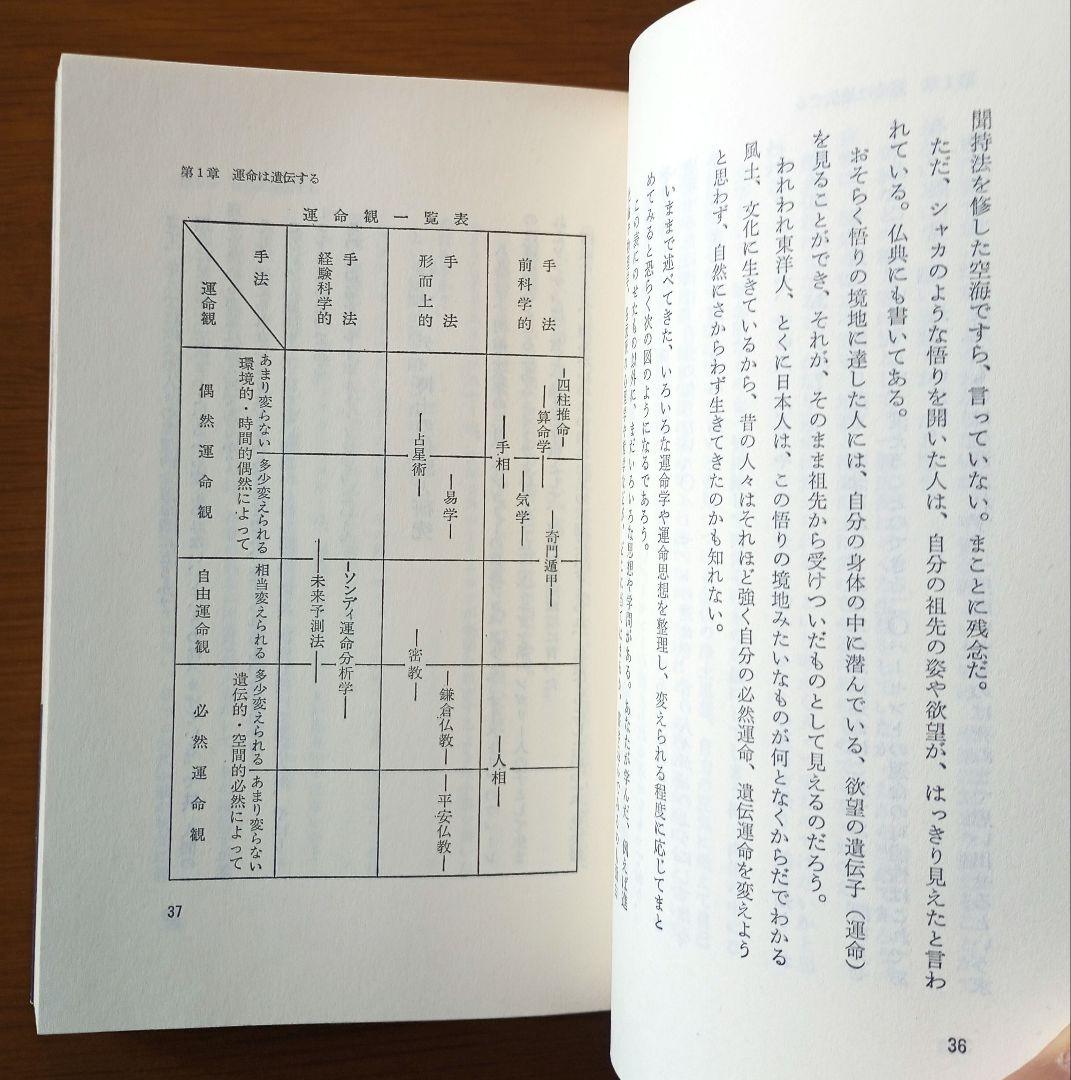 聞持法を修した空海ですら、言っていない。まことに残念だ。
ただ、シャカのような悟りを開いた人は、自分の祖先の姿や欲望が、はっきり見えたと言わ
れている。仏典にも書いてある。
おそらく悟りの境地に達した人には、自分の身体の中に潜んでいる、欲望の遺伝子（運命）
を見ることができ、それが、そのまま祖先から受けついだものとして見えるのだろう。
われわれ東洋人、とくに日本人は、この悟りの境地みたいなものが何となくからだでわかる
風土、文化に生きているから、昔の人々はそれほど強く自分の必然運命、遺伝運命を変えよう
と思わず、自然にさからわず生きてきたのかも知れない。
いままで述べてきた、いろいろな運命学や運命思想を整理し、変えられる程度に応じてまと
めてみると恐らく次の図のようになるであろう。
この表にのせたもの以外に、まだいろいろな思想や学問がある。あなたが学んだ、例えば進
36
第1章 運命は遺伝する
運命観一覧表
手法
運命観
前科学的
手法
形而上的
手法
経験科学的
手法
偶然運命観
環境的・時間的偶然によって
あまり変らない
多少変えられる
自由運命観
相当変えられる
必然運命観
遺伝的・空間的必然によって
多少変えられる
あまり変らない
四柱推命
算命学
手相
気学
奇門遁甲
人相
占星術
易学
密教
鎌倉仏教
平安仏教
ソンディ運命分析学
未来予測法
37